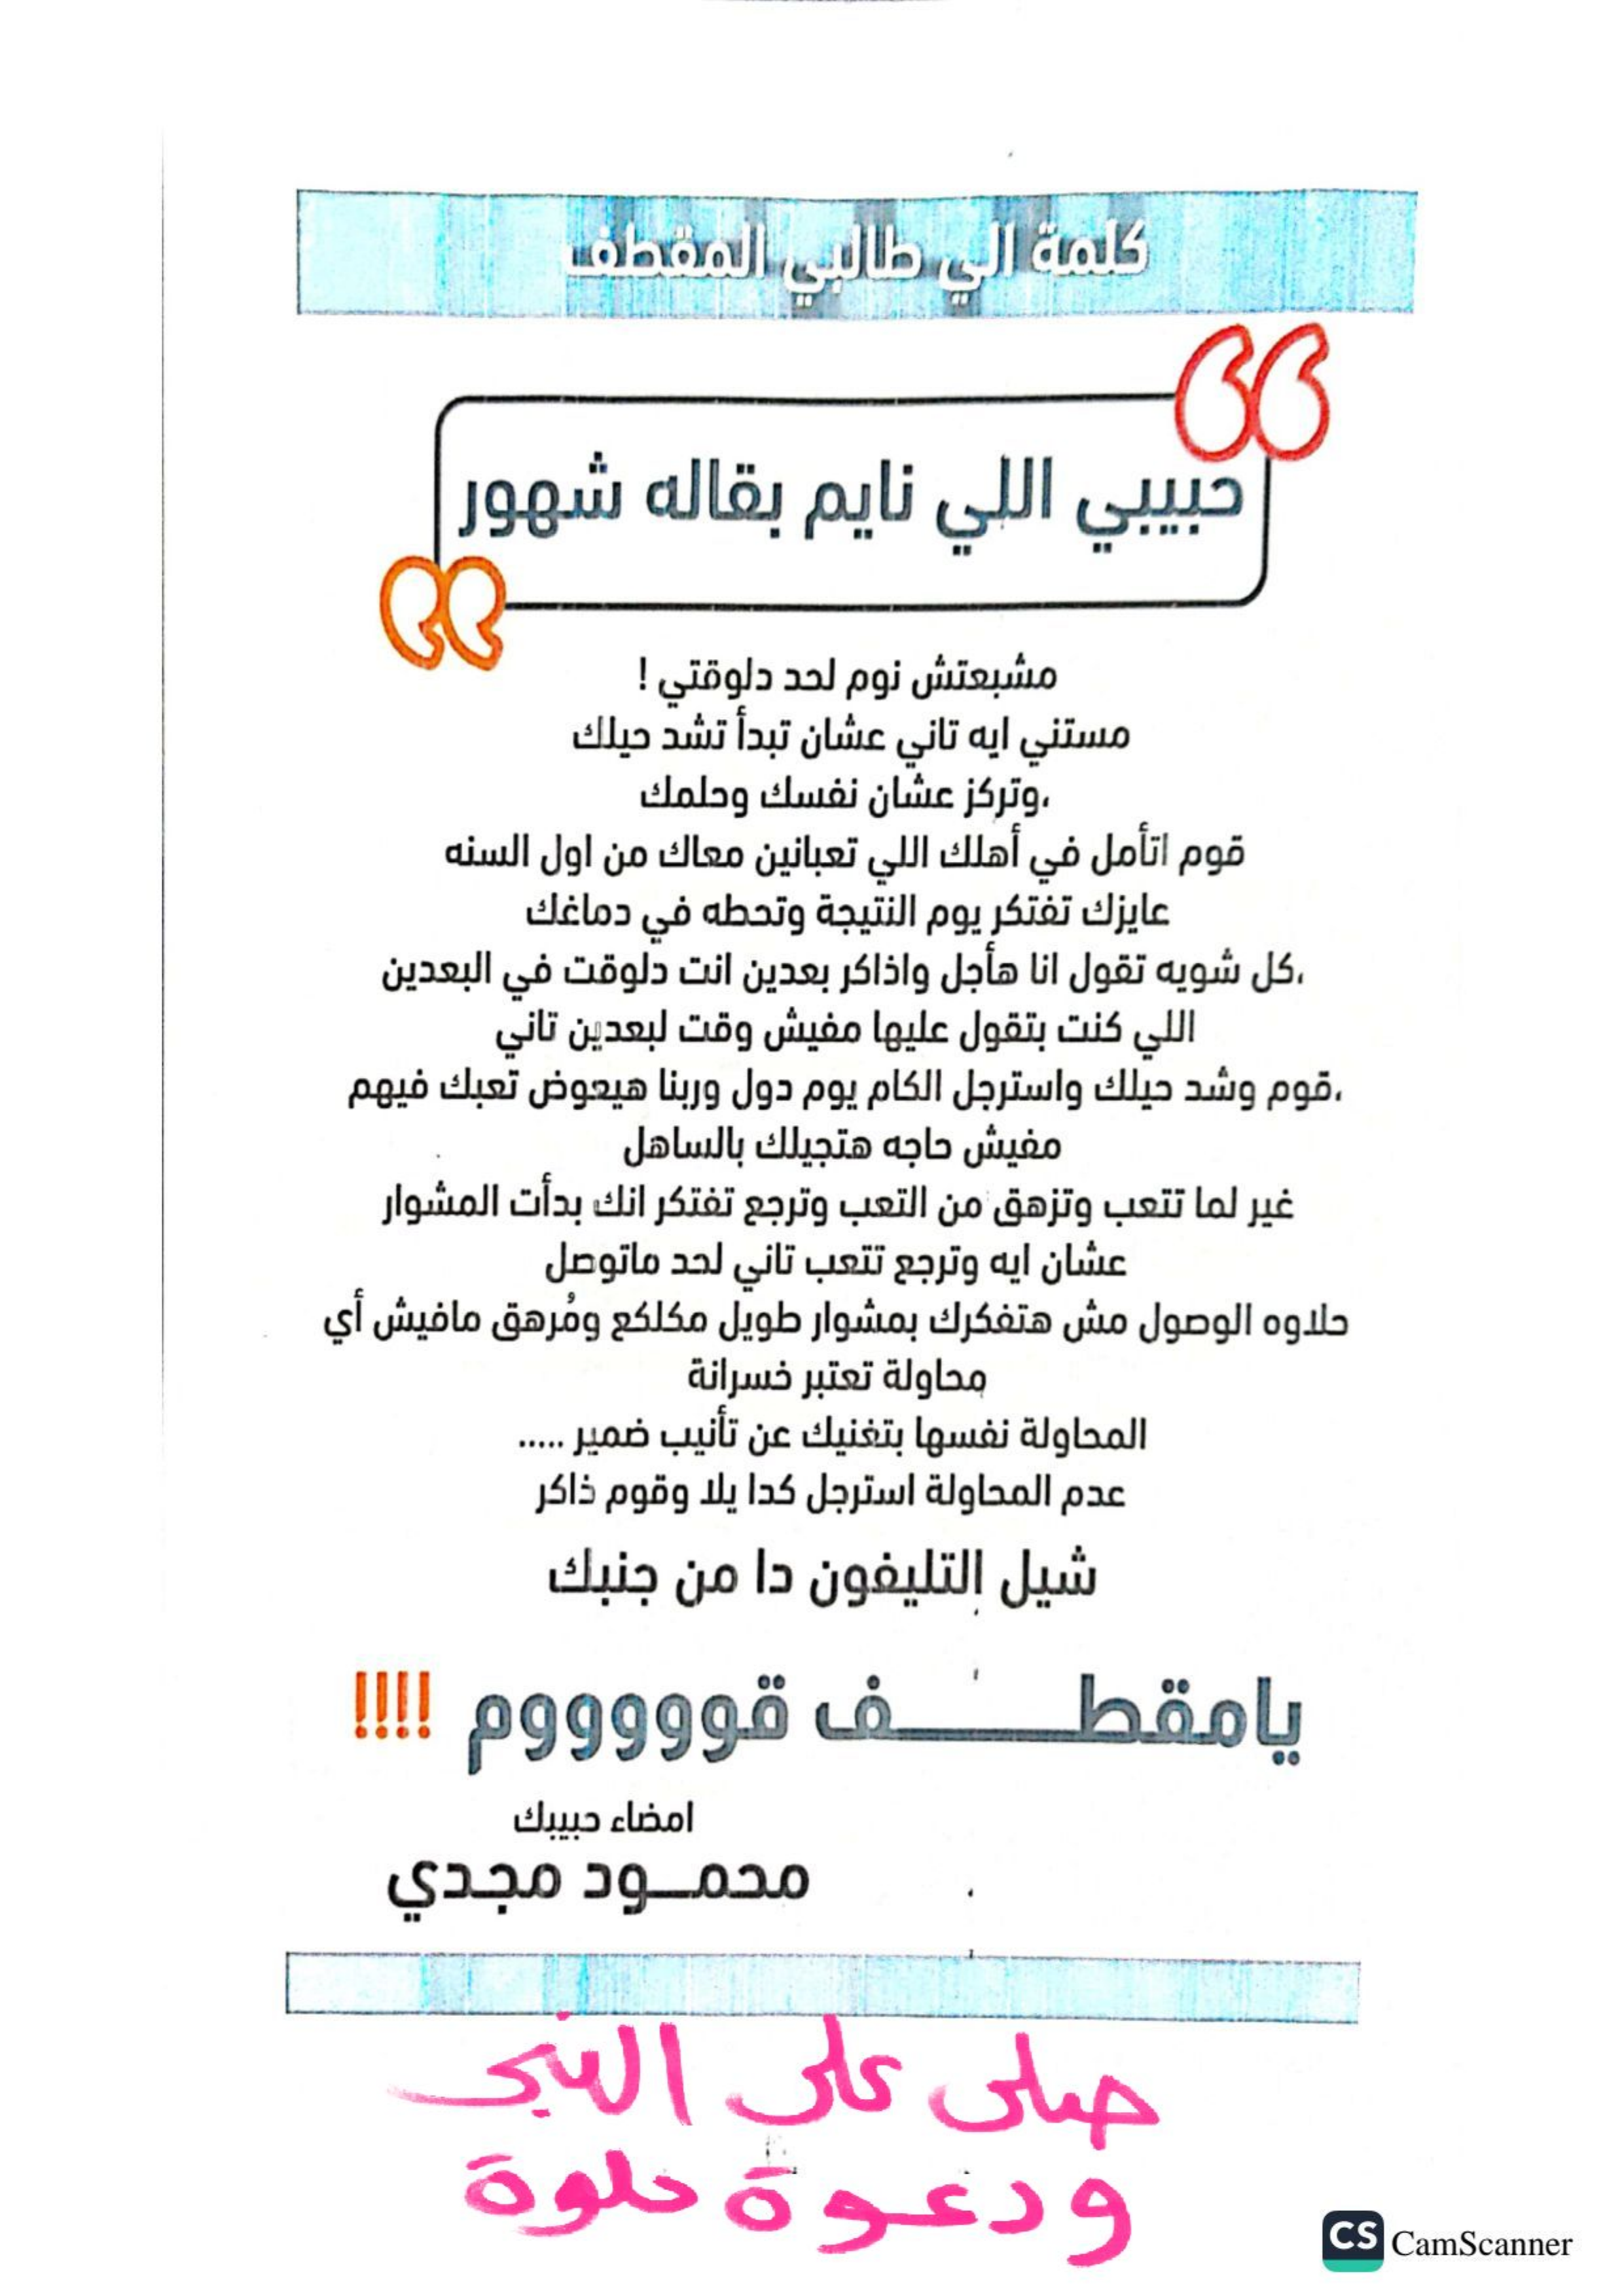 كلمة الي طالبي المقطف
حبيبي اللي نايم بقاله شهور
مشبعتش نوم لحد دلوقتي !
مستني ايه تاني عشان تبدأ تشد حيلك
،وتركز عشان نفسك وحلمك
قوم اتأمل في أهلك اللي تعبانين معاك من اول السنه
عايزك تفتكر يوم النتيجة وتحطه في دماغك
،كل شويه تقول انا هأجل واذاكر بعدين انت دلوقت في البعدين
اللي كنت بتقول عليها مفيش وقت لبعدين تاني
،قوم وشد حيلك واسترجل الكام يوم دول وربنا هيعوض تعبك فيهم
مفيش حاجه هتجيلك بالساهل
غير لما تتعب وتزهق من التعب وترجع تفتكر انك بدأت المشوار
عشان ايه وترجع تتعب تاني لحد ماتوصل
حلاوه الوصول مش هتفكرك بمشوار طويل مكلكع ومُرهق مافيش أي
محاولة تعتبر خسرانة
المحاولة نفسها بتغنيك عن تأنيب ضمير .....
عدم المحاولة استرجل كدا يلا وقوم ذاكر
شيل التليفون دا من جنبك
يامقطــــــف قوووووم !!!!
امضاء حبيبك
محمــود مجدي
صلى على النبى
ودعوة حلوة
CS CamScanner